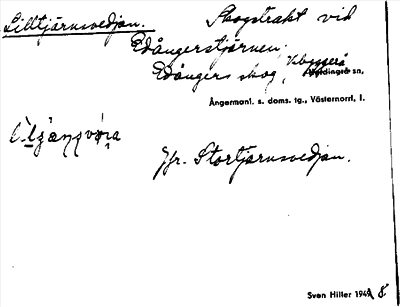 Lilltjärnsvedjan. Skogstrakt vid
Edångerstjärnen.
Edångers skog, Vibyggerå sn,
Ångermanl. s. doms. tg., Västernorrl. l.
Jfr. Stortjärnsvedjan.
Sven Hiller 1948